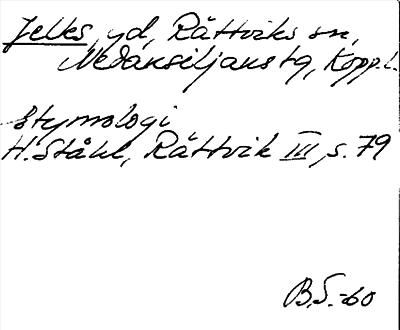 Jelkes, yd, Rättviks sn,
Nedansiljans tg, Kopp.l.
Etymologi
H. Ståhl, Rättvik III, s. 79
B.S.-60